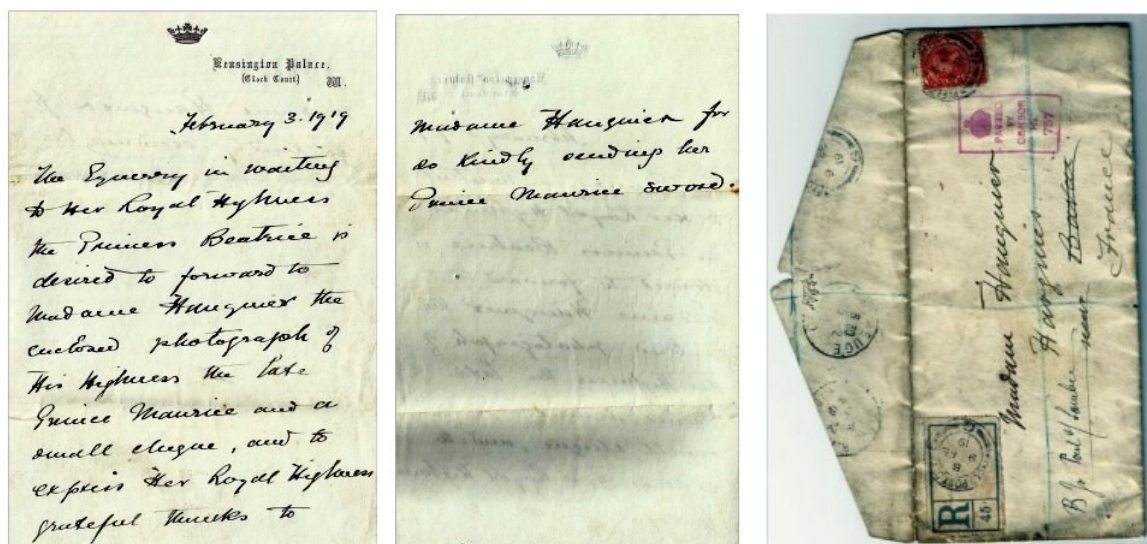 Kensington Palace,
(Clock Court) W.
February 3. 1919
The Equerry in waiting
to Her Royal Highness
the Princess Beatrice is
desired to forward to
Madame Hauguier the
enclosed photograph of
His Highness the late
Prince Maurice and a
small cheque, and to
express Her Royal Highness
grateful thanks to
Madame Hauguier for
so kindly sending her
Prince Maurice sword.
PASSED
BY
CENSOR
No. 757
Madam Hauguier
Hargnies
near
France
R
45